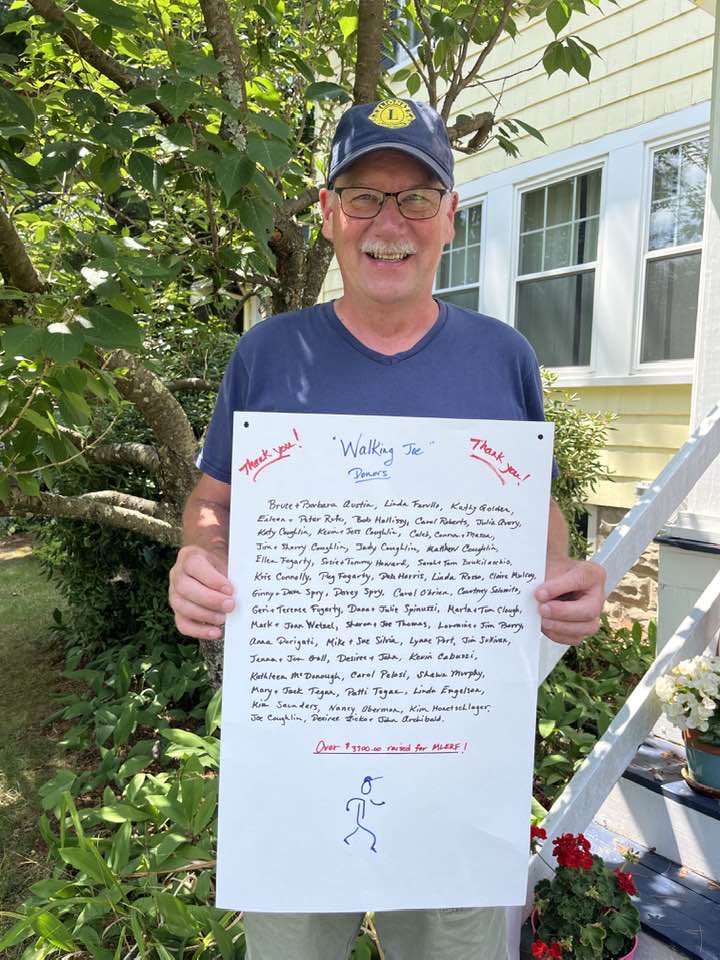 LIONS
L
Thank you!
"Walking Joe"
Thank you!
Donors
Bruce + Barbara Austin, Linda Farullo, Kathy Golden,
Eileen + Peter Roto, Bob Hallissy, Carol Roberts, Julia Avery,
Katy Coughlin, Kevin + Jess Coughlin, Caleb, Conna + Mason,
Jim + Sherry Coughlin, Judy Coughlin, Matthew Coughlin,
Ellen Fogarty, Susie + Tommy Howard, Sarah + Tom
Kris Connolly, Peg Fogarty, Deb Harris, Linda Russo, Claire Mulroy,
Ginny + Dana Spry, Dorey Spry, Carol O'Brien, Courtney
Geri + Terence Fogarty, Dana + Julie Spinuzzi, Marta + Tom Clough,
Mark + Joan Wetzel, Sharon + Joe Thomas, Lorraine + Jim Barry,
Anna Dorigati, Mike + Sue Silvia, Lynne Port, Jim Sullivan,
Jenna + Jim Goll, Desiree + John, Kevin Cabuzzi,
Kathleen McDonough, Carol Pelosi, Shawn Murphy,
Mary + Jack Tegan, Patti Tegan, Linda Engelson,
Kia Saunders, Nancy Oberman, Kim Honetschlager,
Joe Coughlin, Desiree + John Archibald.
Over $3700.00 raised for MLERF!